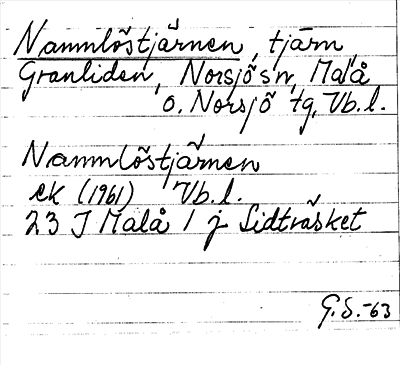 Namnlöstjärnen, tjärn,
Granliden, Norsjö sn, Malå
o. Norsjö tg, Vb.l.
Namnlöstjärnen
ek (1961) Vb.l.
23 J Malå 1 j Lidträsket
G.S.-63